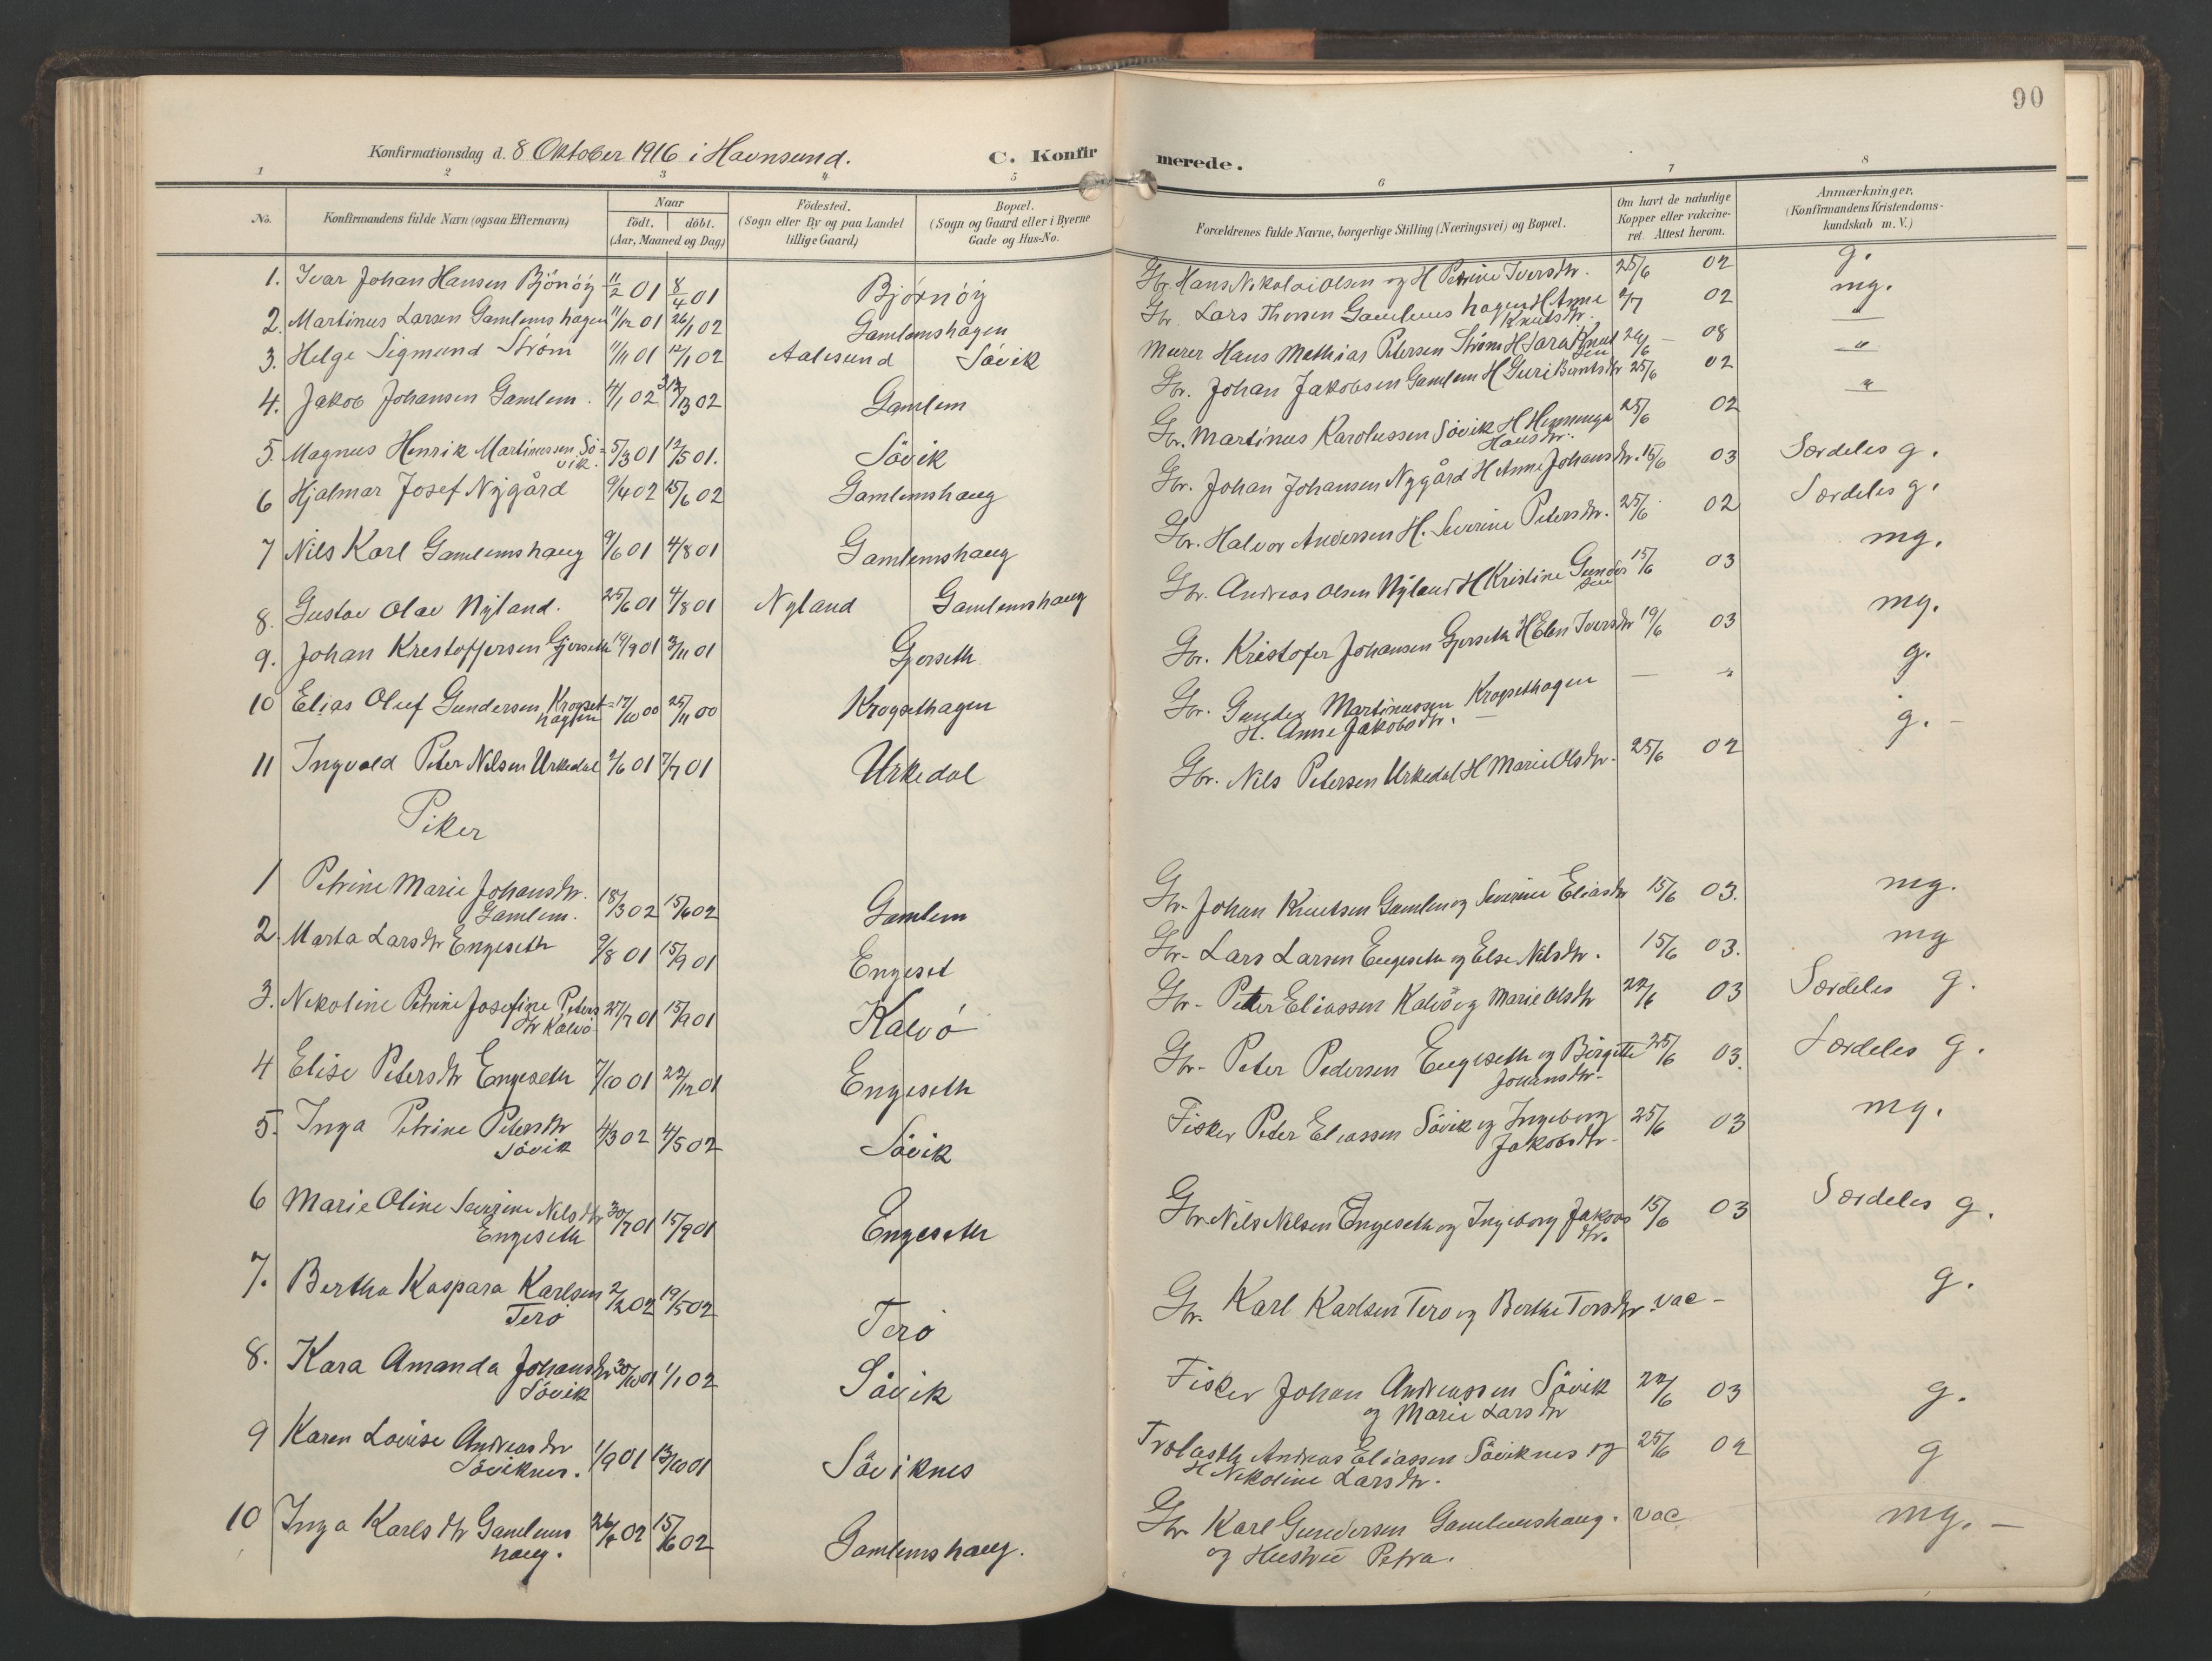 90
Konfirmationsdag d. 8 Oktober 1916 i Havnsund.
C. Konfirmerede.
1 2 3 4 5 6 7 8
No. Konfirmandens fulde Navn (ogsaa Efternavn) Naar födt. döbt. (Aar, Maaned og Dag) Födested. (Sogn eller By og paa Landet tillige Gaard) Bopæl. (Sogn og Gaard eller i Byerne Gade og Hus-No. Forældrenes fulde Navne, borgerlige Stilling (Næringsvei) og Bopæl. Om havt de naturlige Kopper eller vakcineret. Attest herom. Anmærkninger. (Konfirmandens Kristendomskundskab m. V.)
1. Ivar Johan Hansen Björnöy 11/2 01 8/4 01 Björnöy Gbr. Hans Nikolai Olsen og H Petrine Iversdtr. 25/6 02 g.
2. Martinus Larsen Gamlemshagen 11/12 01 26/1 02 Gamlemshagen Gbr. Lars Thorsen Gamlemshagen H Anne Knutsdtr. 02 mg.
3. Helge Sigmund Ström 11/11 01 12/1 02 Aalesund Sövik Murer Hans Mathias Petersen Ström H Sara Knutsen 08 "
4. Jakob Johansen Gamlem. 4/1 02 02 Gamlem Gbr. Johan Jakobsen Gamlem H Guri Berntsdtr 25/6 02 "
5. Magnus Henrik Martinussen Sövik. 5/3 01 12/5 01. Sövik Gbr. Martinus Karolussen Sövik H Hansdtr. 25/6 02 "
6 Hjalmar Josef Nygård 9/4 02 15/6 02 Gamlemshaug Gbr. Johan Johansen Nygård H Anne Johansdtr. 15/6 03 Særdeles g.
7 Nils Karl Gamlemshaug 9/6 01 4/8 01 Gamlemshaug Gbr. Halvor Andersen H. Severine Petersdtr. 25/6 02 Særdeles g.
8. Gustav Olav Nyland. 25/6 01 4/8 01 Nyland Gamlemshaug Gbr. Andreas Olsen Nyland H Kristine Gundersen 15/6 03 mg.
9. Johan Krestoffersen Gjerseth 19/9 01 3/11 01 Gjerseth Gbr. Kristofer Johansen Gjerseth H Elen Iversdtr 19/6 03 mg.
10 Elias Oluf Gundersen, Krogsethagen 17/10 00 25/11 00 Krogsethagen Gbr. Gunder Martinussen Krogsethagen H. Anne Jakobsdtr. — " g.
11 Ingvald Peter Nilsen Urkedal 2/6 01 7/7 01 Urkedal Gbr. Nils Petersen Urkedal H Marie Olsdtr. 25/6 02 g. -
Piker
1 Petrine Marie Johansdtr. Gamlem. 18/3 02 15/6 02 Gamlem Gbr. Johan Knutsen Gamlem og Severine Eliasdtr 15/6 03. mg.
2. Marta Larsdtr Engeseth 9/8 01 15/9 01 Engeset Gbr. Lars Larsen Engeseth og Else Nilsdtr. 15/6 03. mg
3. Nikoline Petrine Josefine Petersdtr Kalvö 27/7 01 15/9 01 Kalvö Gbr - Peter Eliassen Kalvö og Marie Olsdtr 22/6 03 Særdeles g.
4 Elise Petersdtr Engeseth 7/10 01 22/12 01 Engeseth Gbr. Peter Pedersen Engeseth og Birgitte Johansdtr. 25/6 03. Særdeles g.
5. Inga Petrine Petersdtr Sövik 4/3 02 4/5 02 Sövik Fisker Peter Eliassen Sövik og Ingeborg Jakobsdtr. 25/6 03 mg.
6 Marie Oline Severine Nilsdtr Engeseth 30/7 01 15/9 01 Engeseth Gbr. Nils Nilsen Engeseth og Ingeborg Jakobsdtr. 15/6 03 Særdeles g.
7. Bertha Kaspara Karlsen Terö 2/2 02 19/5 02 Terö Gbr. Karl Karlsen Terö og Berthe Torsdtr. vac - g.
8. Kara Amanda Johansdtr Sövik 30/10 01 1/1 02 Sövik Fisker Johan Andreassen Sövik og Marie Larsdtr 22/6 03 g.
9 Karen Lovise Andreasdtr Söviknes. 1/9 01 13/10 01 Söviknes Andreas Eliassen Söviknes og H Nikoline Larsdtr. 25/6 02 g
10 Inga Karlsdtr Gamlemshaug. 02 15/6 02 Gamlemshaug. Gbr Karl Gundersen Gamlemshaug. og Hustru Petra. vac mg. -